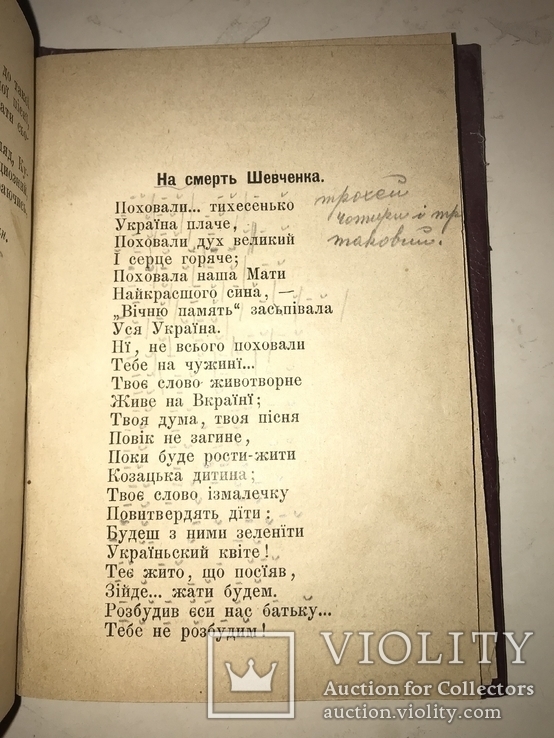 до такої
ної пісні,
ати ено-
яд, Ку-
дновзаїй
раючись
На смерть Шевченка.
трохей
чотири і три
таковий.
Поховали... тихесенько
Україна плаче,
Поховали дух великий
І серце горяче;
Поховала наша Мати
Найкрасшого сина, —
„Вічню память“ засьпівала
Уся Україна.
Нї, не всього поховали
Тебе на чужинї...
Твоє слово животворне
Живе на Вкраїнї;
Твоя дума, твоя пісня
Повік не загине,
Поки буде рости-жити
Козацька дитина;
Твоє слово ізмалечку
Повитвердять дїти:
Будеш з ними зеленїти
Україньский квіте!
Теє жито, що посїяв,
Зійде... жати будем.
Розбудив єси нас батьку...
Тебе не розбудим!
VIOLITY
Auction for Collectors
auction.violity.com